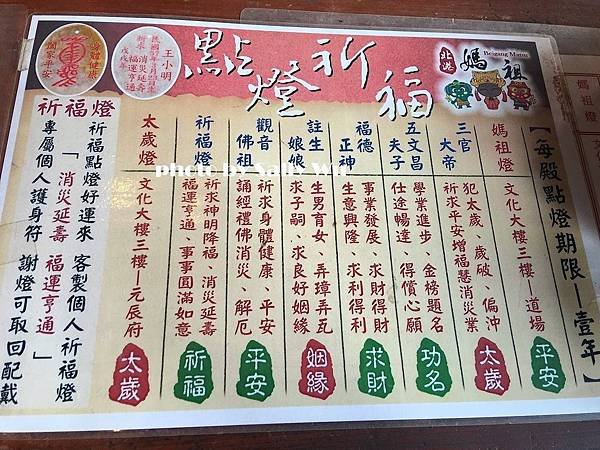 點燈祈福
北港
媽祖
Beigang Matsu
闔家平安
身體健康
王小明
消災延壽
福運亨通
【每殿點燈期限—壹年】
媽祖燈
文化大樓三樓—道場
平安
三官大帝
犯太歲 歲破、偏沖
祈求平安增福慧消災業
太歲
五文昌夫子
學業進步、金榜題名
仕途暢達、得償心願
功名
福德正神
事業發展、求財得財
生意興隆、求利得利
求財
註生娘娘
生男育女、弄璋弄瓦
求子嗣、求良好姻緣
姻緣
觀音佛祖
祈求身體健康、平安
誦經禮佛消災、解厄
平安
祈福燈
祈求神明降福、消災延壽
福運亨通、事事圓滿如意
祈福
太歲燈
文化大樓三樓—元辰府
太歲
祈福燈
祈福點燈好運來 客製個人祈福燈
「消災延壽 福運亨通」
專屬個人護身符 謝燈可取回配戴
photo by Sally Wu
媽祖燈